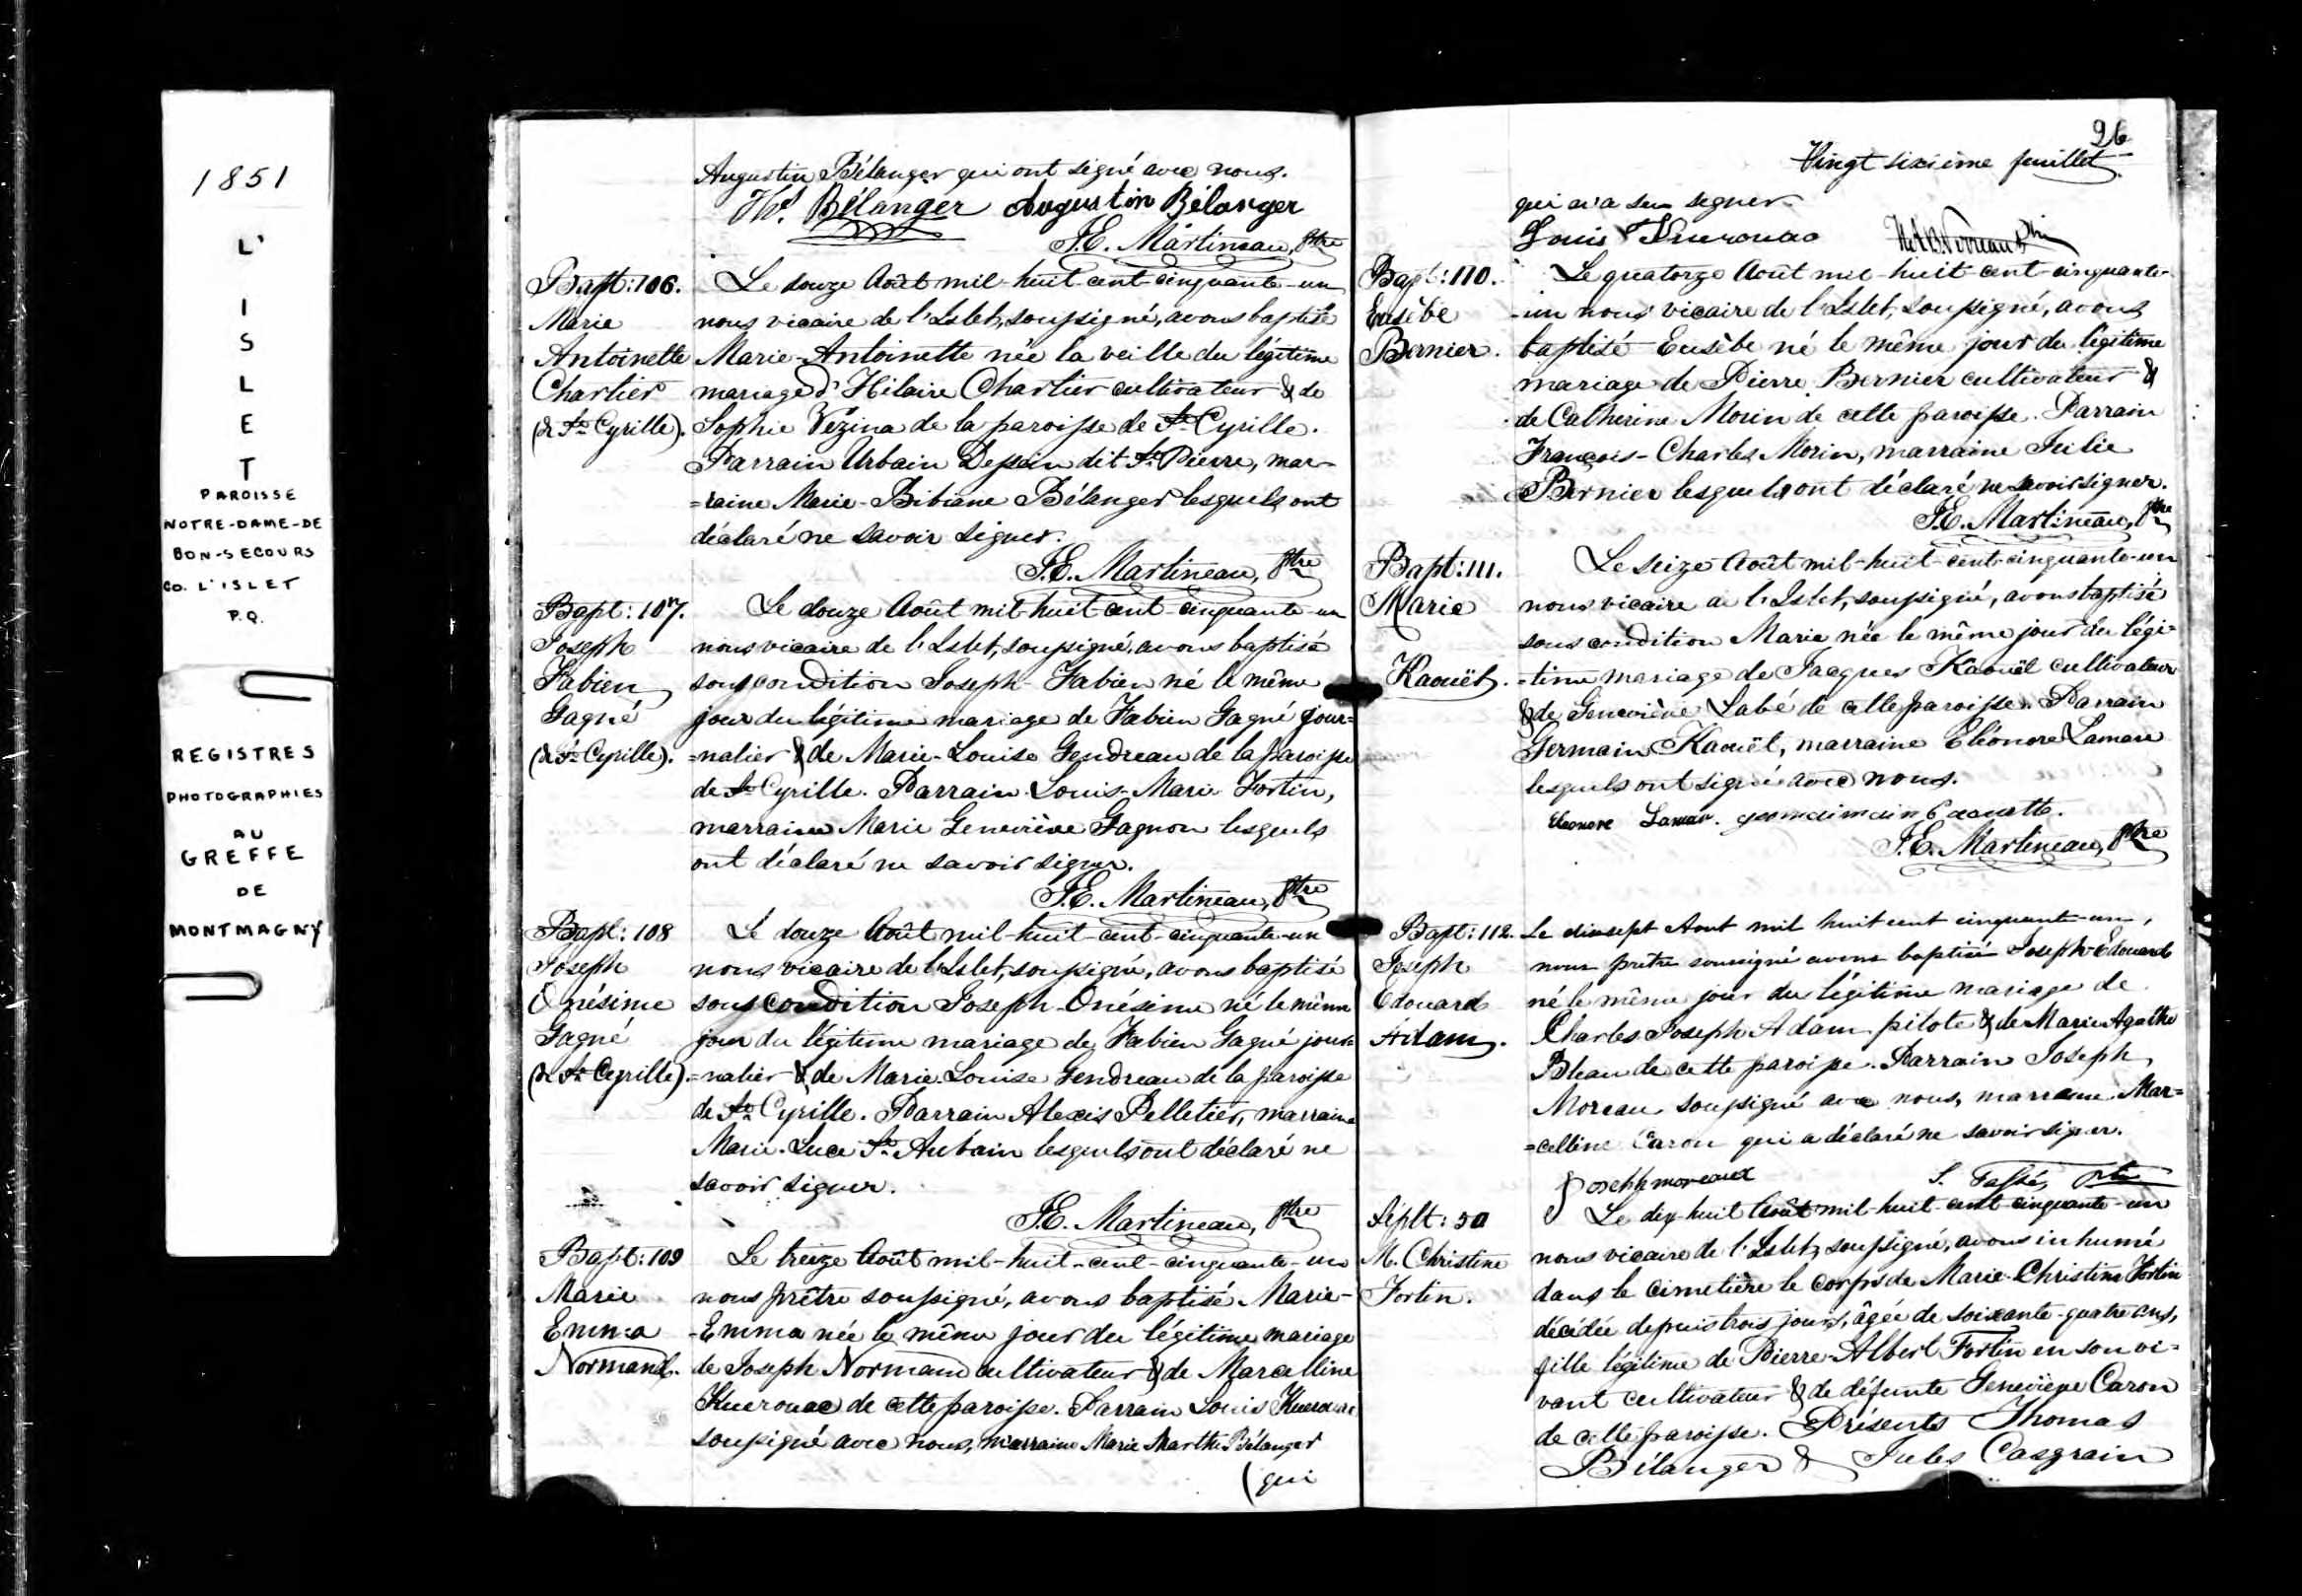 1851
L'
I
S
L
E
T
PAROISSE
NOTRE-DAME-DE
BON-SECOURS
CO. L'ISLET
P.Q.
REGISTRES
PHOTOGRAPHIES
AU
GREFFE
DE
MONTMAGNY
Augustin Bélanger qui ont signé avec nous.
Ths. Bélanger Augustin Bélanger
J.E. Martineau, Ptre
Bapt: 106.
Marie
Antoinette
Chartier
(de St Cyrille).
Le douze Août mil-huit-cent-cinquante-un
nous vicaire de l'Islet, soussigné, avons baptisé
Marie-Antoinette née la veille du légitime
mariage d'Hilaire Chartier cultivateur & de
Sophie Vézina de la paroisse de St Cyrille.
Parrain Urbain Dessein dit St Pierre, mar-
=raine Marie-Bibiane Bélanger lesquels ont
déclaré ne savoir signer.
J.E. Martineau, Ptre
Bapt: 107.
Joseph
Fabien
Gagné
(de St Cyrille).
Le douze Août mil-huit-cent-cinquante-un
nous vicaire de l'Islet, soussigné, avons baptisé
sous condition Joseph-Fabien né le même
jour du légitime mariage de Fabien Gagné jour=
=nalier & de Marie-Louise Gendreau de la paroisse
de St Cyrille. Parrain Louis-Marie Fortin,
marraine Marie Geneviève Gagnon lesquels
ont déclaré ne savoir signer.
J.E. Martineau, Ptre
Bapt: 108
Joseph
Onésime
Gagné
(de St Cyrille).
Le douze Août mil-huit-cent-cinquante-un
nous vicaire de l'Islet, soussigné, avons baptisé
sous condition Joseph-Onésime né le même
jour du légitime mariage de Fabien Gagné jour=
=nalier & de Marie Louise Gendreau de la paroisse
de St Cyrille. Parrain Alexis Pelletier, marraine
Marie-Luce St Aubain lesquels ont déclaré ne
savoir signer.
J.E. Martineau, Ptre
Bapt: 109
Marie
Emma
Normand.
Le treize Août mil-huit-cent-cinquante-un
nous prêtre soussigné, avons baptisé Marie-
-Emma née le même jour du légitime mariage
de Joseph Normand cultivateur & de Marcelline
Kuerouac de cette paroisse. Parrain Louis Kuerouac
soussigné avec nous, marraine Marie Marthe Bélanger
(qui
96
Vingt sixième feuillet
qui n'a su signer.
Louis Kuerouac
Bapt: 110.
Eusèbe
Bernier.
Le quatorze Août mil-huit-cent-cinquante-
-un nous vicaire de l'Islet, soussigné, avons
baptisé Eusèbe né le même jour du légitime
mariage de Pierre Bernier cultivateur &
de Catherine Morin de cette paroisse. Parrain
François-Charles Morin, marraine Julie
Bernier lesquels ont déclaré ne savoir signer.
J.E. Martineau, Ptre
Bapt: 111.
Marie
Kaouët.
Le seize Août mil-huit-cent-cinquante-un
nous vicaire de l'Islet, soussigné, avons baptisé
sous condition Marie née le même jour du légi=
=time mariage de Jacques Kaouët cultivateur
& de Geneviève Labé de cette paroisse. Parrain
Germain Kaouët, marraine Eléonore Lamare
lesquels ont signé avec nous.
Eleonore Lamar.
J.E. Martineau, Ptre
Bapt: 112.
Joseph
Edouard
Adam.
Le dixsept Aout mil huit cent cinquante-un,
nous prêtre soussigné avons baptisé Joseph-Edouard
né le même jour du légitime mariage de
Charles Joseph Adam pilote & de Marie Agathe
Bleau de cette paroisse. Parrain Joseph
Moreau soussigné avec nous, marraine Mar=
=celline Caron qui a déclaré ne savoir signer.
Joseph moreaux
Séplt: 50
M. Christine
Fortin.
Le dix-huit Août mil-huit-cent-cinquante-un
nous vicaire de l'Islet, soussigné, avons inhumé
dans le cimetière le corps de Marie-Christine Fortin
décédée depuis trois jours, âgée de soixante-quatre ans,
fille légitime de Pierre-Albert Fortin en son vi=
vant cultivateur & de défunte Geneviève Caron
de cette paroisse. Présents Thomas
Bélanger & Jules Casgrain